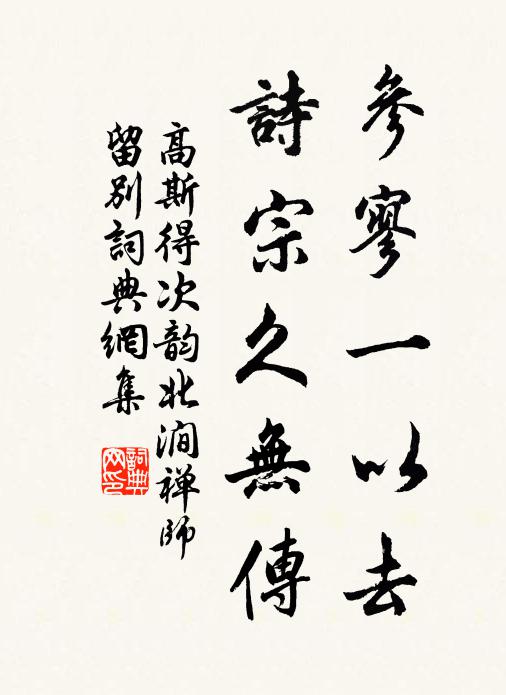 參寥一以去
詩宗久無傳
高斯得次韵北澗禅師
留別詞典網集
詞典網印